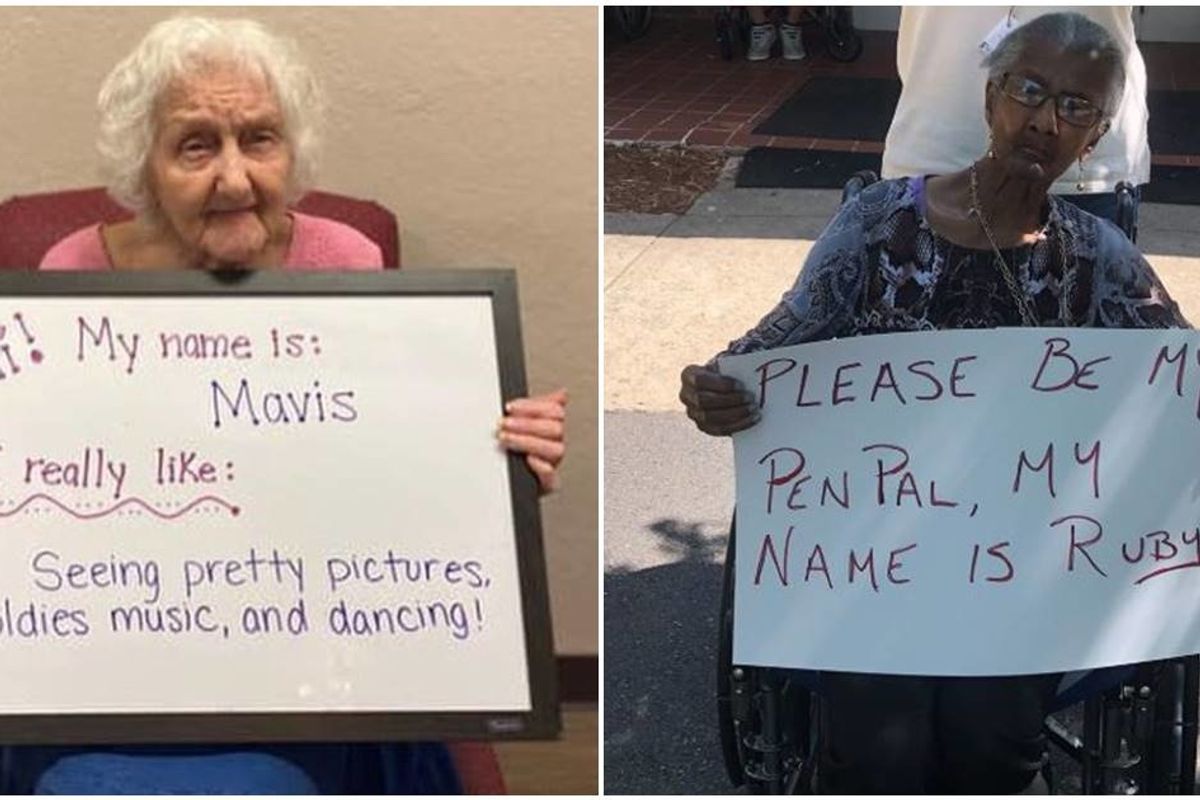 Hi! My name is:
Mavis
I really like:
Seeing pretty pictures,
oldies music, and dancing!
PLEASE BE MY
PENPAL, MY
NAME IS RUBY